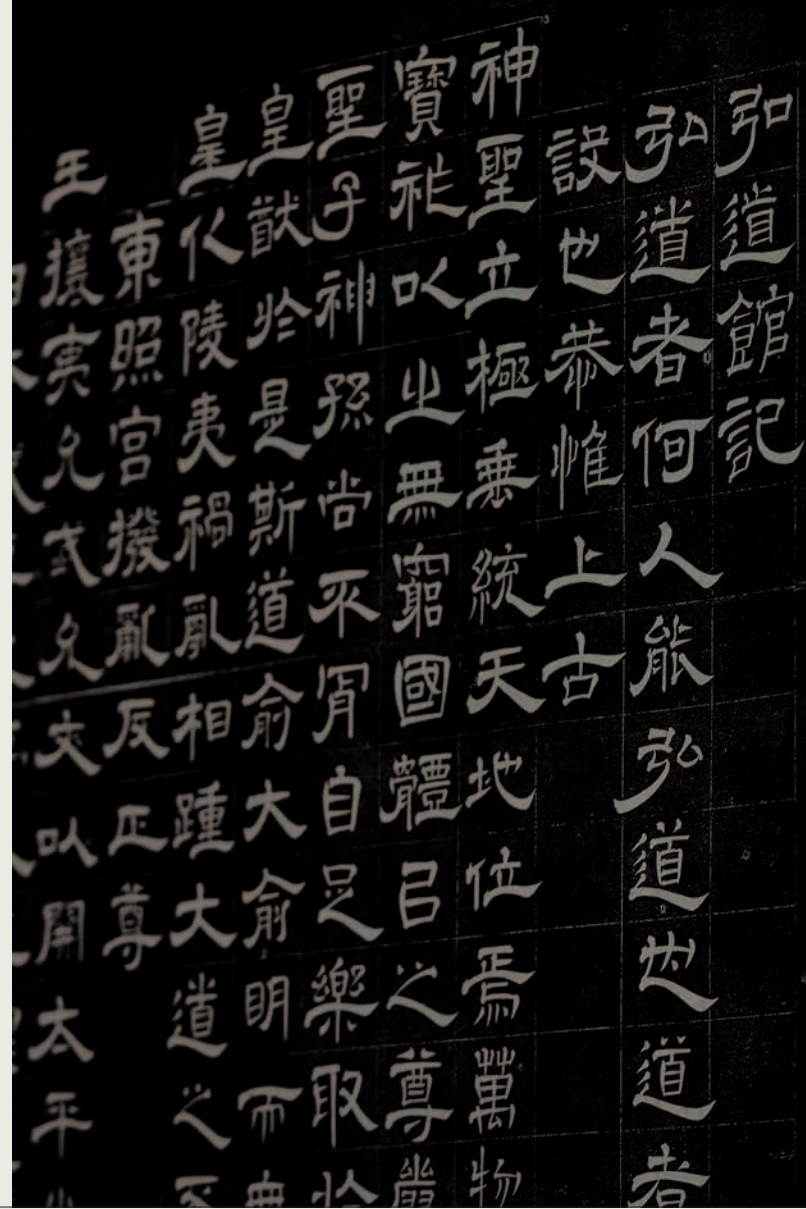 弘道館記
弘道者何人能弘道也道者
設也恭惟上古
神聖立極垂統天地位焉萬物
寶祚以之無窮國體以之尊嚴
聖子神孫尚不肯自足樂取於
皇猷於是斯道俞大俞明而無
皇化陵夷禍亂相踵大道之不
東照宮撥亂反正尊
王攘夷允武允文以開太平之